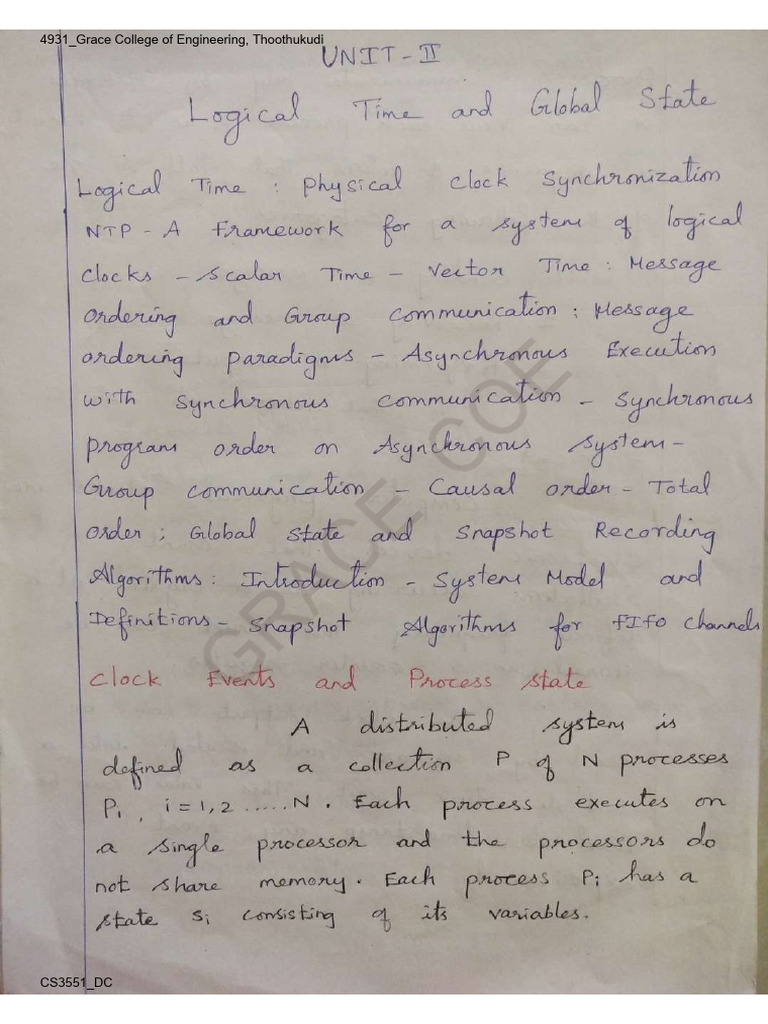 4931_Grace College of Engineering, Thoothukudi
UNIT-II
Logical Time and Global State
Logical Time : Physical clock Synchronization
NTP - A Framework for a system of logical
clocks - Scalar Time - Vector Time : Message
ordering and Group communication : Message
ordering paradigms - Asynchronous Execution
with synchronous communication - Synchronous
program order on Asynchronous system -
Group communication - Causal order - Total
order ; Global state and Snapshot Recording
Algorithms : Introduction - System Model and
Definitions - Snapshot Algorithms for FIFO Channels
GRACE COE
Clock Events and Process state
A distributed system is
defined as a collection P of N processes
Pi, i = 1, 2 ..... N. Each process executes on
a single processor and the processors do
not share memory. Each process Pi has a
state Si consisting of its variables.
CS3551_DC